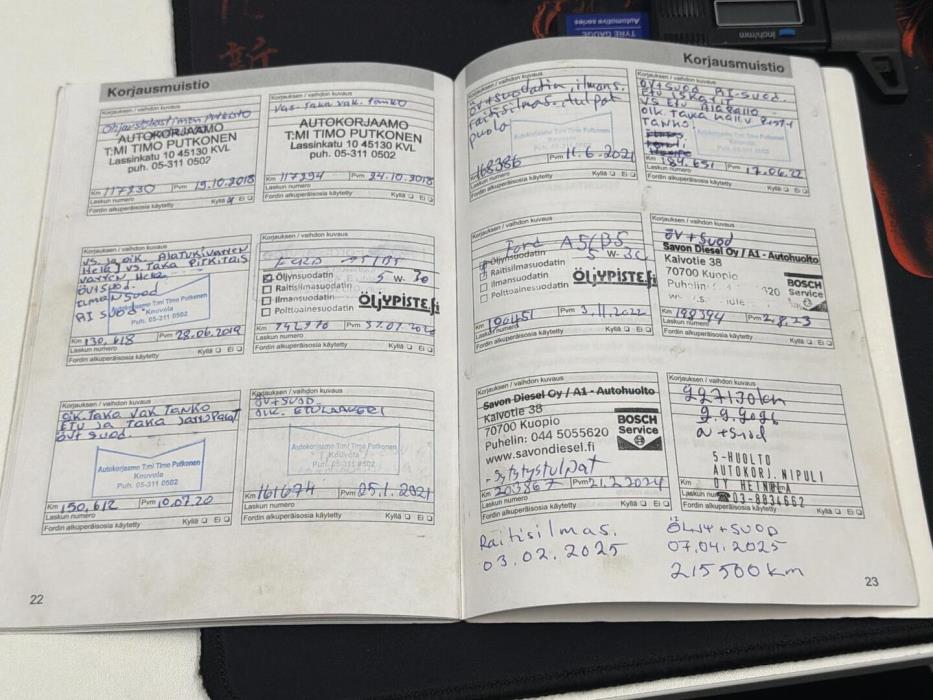 TYRE GAUGE
Automotive series
inch/mm
Korjausmuistio
Korjauksen / vaihdon kuvaus
AUTOKORJAAMO
T:MI TIMO PUTKONEN
Lassinkatu 10 45130 KVL
puh. 05-311 0502
Km 117230 Pvm 19.10.2018
Laskun numero
Fordin alkuperäisosia käytetty Kyllä Ei
Korjauksen / vaihdon kuvaus
Vas. Taka vak. tanko
AUTOKORJAAMO
T:MI TIMO PUTKONEN
Lassinkatu 10 45130 KVL
puh. 05-311 0502
Km 117294 Pvm 24.10.2018
Laskun numero
Fordin alkuperäisosia käytetty Kyllä Ei
Korjauksen / vaihdon kuvaus
VS. ja oik. ALATUKIVARREN
HELAT VS. TAKA PITKITÄIS
VARREN HELA
ÖV+SUOD.
ILMANSUOD
RI SUOD.
Autokorjaamo T:mi Timo Putkonen
Kouvola
Puh. 05-311 0502
Km 130,618 Pvm 28.06.2019
Laskun numero
Fordin alkuperäisosia käytetty Kyllä Ei
Korjauksen / vaihdon kuvaus
A5/B5
Öljynsuodatin 5 W- 30
Raitisilmasuodatin
Ilmansuodatin
Polttoainesuodatin
ÖLJYPISTE.fi
Km Pvm
Laskun numero
Fordin alkuperäisosia käytetty Kyllä Ei
Korjauksen / vaihdon kuvaus
OK. TAKA VAK TANKO
ETU JA TAKA JARRUPALAT
ÖV+ SUOD.
Autokorjaamo T:mi Timo Putkonen
Kouvola
Puh. 05-311 0502
Km 150,612 Pvm 10.07.20
Laskun numero
Fordin alkuperäisosia käytetty Kyllä Ei
Korjauksen / vaihdon kuvaus
ÖV+SUOD.
OIK. ETULAAKERI
Autokorjaamo T:mi Timo Putkonen
Kouvola
Puh. 05-311 0502
Km 161674 Pvm 25.1.2021
Laskun numero
Fordin alkuperäisosia käytetty Kyllä Ei
22
Korjausmuistio
Korjauksen / vaihdon kuvaus
öv+suodatin, ilmans.
raitisilmas. tulpat
Autokorjaamo T:mi Timo Putkonen
Kouvola
Puh. 05-311 0502
168386 Pvm 11.6.2021
Laskun numero
Fordin alkuperäisosia käytetty Kyllä Ei
Korjauksen / vaihdon kuvaus
ÖV+SUOD RI-SUOD.
ETU ISKARIT
VS ETU ALAPALLO
OIK. TAKA
TANKO
Autokorjaamo T:mi Timo Putkonen
Kouvola
Puh. 05-311 0502
Km 184.651 Pvm 17.06.22
Laskun numero
Fordin alkuperäisosia käytetty Kyllä Ei
Korjauksen / vaihdon kuvaus
Ford A5/B5
Öljynsuodatin 5 W- 30
Raitisilmasuodatin
Ilmansuodatin
Polttoainesuodatin
ÖLJYPISTE.fi
Km 190451 Pvm 3.11.2022
Laskun numero
Fordin alkuperäisosia käytetty Kyllä Ei
Korjauksen / vaihdon kuvaus
öv+suod
Savon Diesel Oy / A1 - Autohuolto
Kalvotie 38
70700 Kuopio
Puhelin:
BOSCH
Service
Km 198394 Pvm 2.8.23
Laskun numero
Fordin alkuperäisosia käytetty Kyllä Ei
Korjauksen / vaihdon kuvaus
Savon Diesel Oy / A1 - Autohuolto
Kalvotie 38
70700 Kuopio
Puhelin: 044 5055620
www.savondiesel.fi
BOSCH
Service
- sytytystulpat
Km 203867 Pvm 21.2.2024
Laskun numero
Fordin alkuperäisosia käytetty Kyllä Ei
Raitisilmas.
03.02.2025
Korjauksen / vaihdon kuvaus
öv+suod
S-HUOLTO
AUTOKORJ.NIPULI
OY HEINOLA
☎03-8834662
Km Pvm
Laskun numero
Fordin alkuperäisosia käytetty Kyllä Ei
ÖLJY+SUOD
07.04.2025
215500 km
23